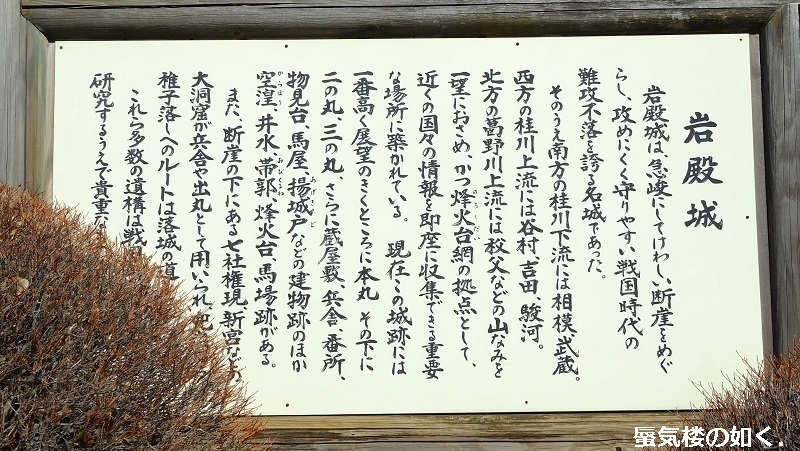 岩殿城
岩殿城は、急峻にしてけわしい断崖をめぐ
らし、攻めにくく守りやすい戦国時代の
難攻不落を誇る名城であった。
そのうえ南方の桂川下流には相模、武蔵。
西方の桂川上流には谷村、吉田、駿河。
北方の葛野川上流には秩父などの山なみを
一望におさめ、かつ烽火台網の拠点として、
近くの国々の情報を即座に収集できる重要
な場所に築かれている。 現在この城跡には
一番高く展望のきくところに本丸 その下に
二の丸、三の丸、さらに蔵屋敷、兵舎、番所、
物見台、馬屋、揚城戸などの建物跡のほか
空湟、井水、帯郭、烽火台、馬場跡がある。
また、断崖の下にある七社権現、新宮など
大洞窟が兵舎や出丸として用いられ
稚子落しへのルートは落城の
これら多数の遺構は戦
研究するうえで貴重な
蜃気楼の如く.